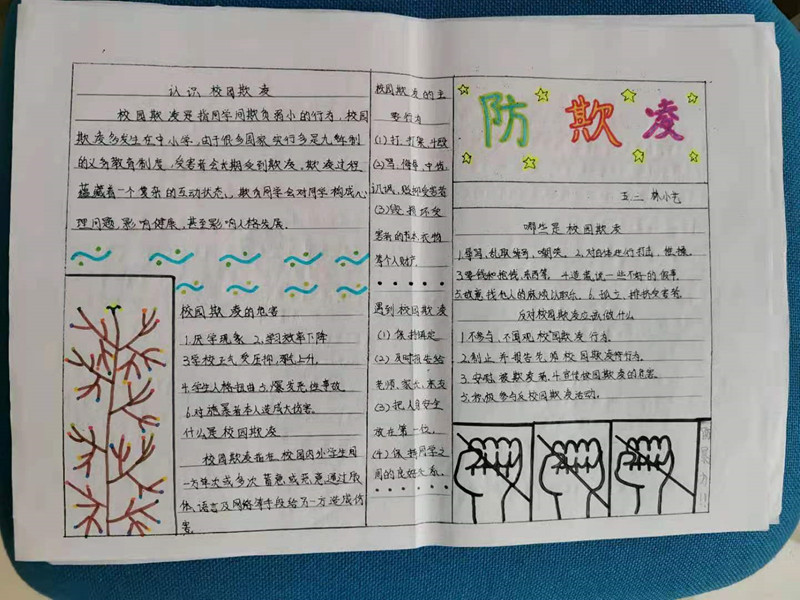 认识校园欺凌
校园欺凌是指同学间欺负弱小的行为,校园
欺凌多发生在中小学,由于很多国家实行多是九年制
的义务教育制度,受害者会长期受到欺凌,欺凌过程
蕴藏着一个复杂的互动状态,欺负同学会对同学构成心
理问题,影响健康,甚至影响人格发展.
校园欺凌的危害
1.厌学现象 2.学习效率下降
3学校正气受压抑,上升,
4.学生人格扭曲 5.爆发死伤事故
6.对施暴者本人造成大伤害.
什么是校园欺凌
校园欺凌指在校园内外学生间
一方单次或多次蓄意或恶意通过肢
体、语言及网络等手段给另一方造成伤
害
校园欺凌的主
要行为
(1)打,打架,斗殴
(2)骂,侮辱,中伤,
讥讽,贬抑受害者
(3)毁损坏受
害者的书本,衣物
等个人财产
遇到校园欺凌
(1)保持镇定
(2)及时报告给
老师,家长,
(3)把人身安全
放在第一位,
(4)保持同学之
间的良好关系.
防欺凌
五二
哪些是校园欺凌
1.辱骂,乱取外号,嘲笑。2.对身体进行打击,推撞。
3.要钱和抢钱,东西等。4.造谣说一些不好的假事.
5.故意找他人的麻烦以取乐。6.孤立、排挤受害者.
反对校园欺凌应该做什么
1.不参与、不围观校园欺凌行为.
2.制止并报告老师校园欺凌行为.
3.安慰被欺凌者,4.宣传校园欺凌的危害.
5.积极参与反校园欺凌活动.